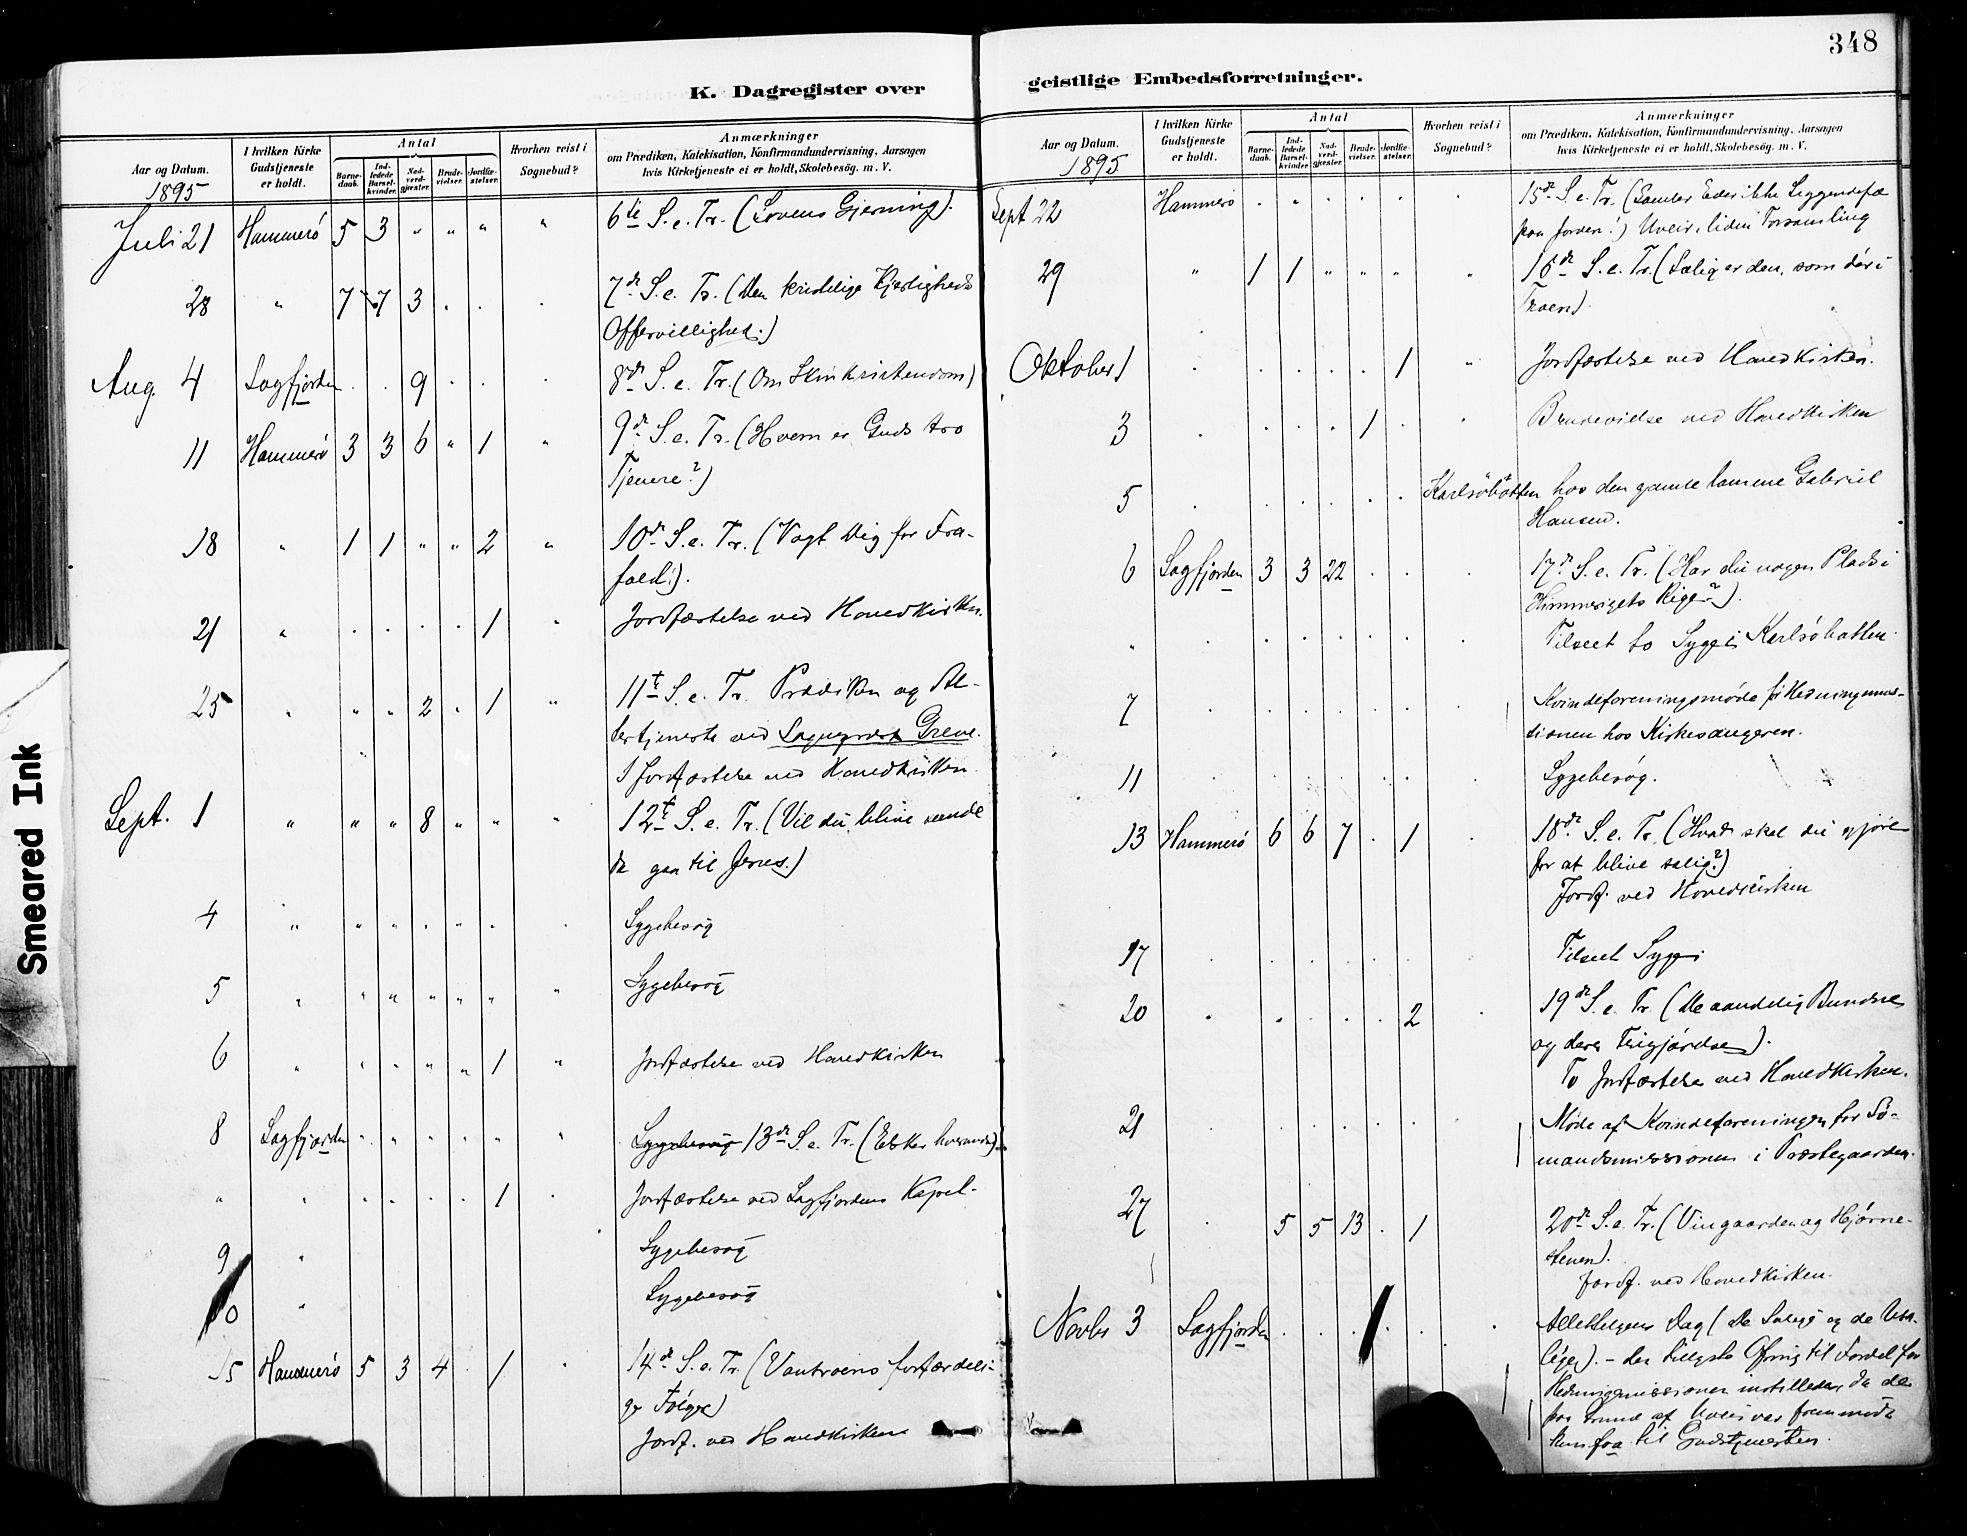 348
K. Dagregister over
geistlige Embedsforretninger.
Smeared Ink
Aar og Datum.
1895
I hvilken Kirke
Gudstjeneste
er holdt.
Antal
Barne-
daab.
Ind-
ledede
Barsel-
kvinder.
Nad-
verd-
gjester.
Brude-
vielser.
Jordfæ-
stelser.
Hvorhen reist i
Sognebud?
Anmærkninger
om Prædiken, Katekisation, Konfirmandundervisning, Aarsagen
hvis Kirketjeneste ei er holdt, Skolebesög. m. V.
Juli 21 Hammerö 5 3 " " " " 6te S. e. Tr. (Lovens Gjerning).
28 " 7 7 3 . . . 7de S. e. Tr. (Den kristelige Kjærligheds
Offervillighed.)
Aug. 4 Sagfjorden . . 9 . . . 8de S. e. Tr. (Om Skinkristendom)
11 Hammerö 3 3 6 " 1 " 9de S. e. Tr. (Hvem er Guds tro
Tjenere?)
18 " 1 1 " " 2 " 10de S. e. Tr. (Vogt Dig for Fra-
fald!).
21 " . . . . 1 " Jordfæstelse ved Hovedkirken.
25 " " " 2 . 1 " 11te S. e. Tr. Prædiken og Al-
tertjeneste ved Sogneprest Greve.
1 Jordfæstelse ved Hovedkirken.
Sept. 1 " " " 8 " " " 12te S. e. Tr. (Vil du blive sund
da gaa til Jesus.)
4 " " " . " . . Sygebesög
5 " " " " " " " Sygebesög
6 " " " " " 1 " Jordfæstelse ved Hovedkirken
8 Sagfjorden " " " " " " Sygebesög 13de S. e. Tr. (Elsker hverandre)
" " " . . . 1 . Jordfæstelse ved Sagfjordens Kapel.
9 " Sygebesög
10 " Sygebesög
15 Hammerö 5 3 4 . 1 . 14de S. e. Tr. (Vantroens forfærdeli-
ge Følger)
Jordf. ved Hovedkirken
Aar og Datum.
1895
I hvilken Kirke
Gudstjeneste
er holdt.
Antal
Barne-
daab.
Ind-
ledede
Barsel-
kvinder.
Nad-
verd-
gjester.
Brude-
vielser.
Jordfæ-
stelser.
Hvorhen reist i
Sognebud?
Anmærkninger
om Prædiken, Katekisation, Konfirmandundervisning, Aarsagen
hvis Kirketjeneste ei er holdt, Skolebesög. m. V.
Sept 22 Hammerö . . . . . . 15de S. e. Tr. (Samler Eder ikke Liggendefæ
paa Jorden!) Uveir, liden Forsamling
29 " 1 1 " " " " 16de S. e. Tr. (Salig er den, som dör i
Troen).
Oktober 1 . . . . . 1 " Jordfæstelse ved Hovedkirken.
3 . . . . 1 . . Brudevielse ved Hovedkirken
5 . . . . . . Karlsöbotten hos den gamle lamme Gabriel
Hansen.
6 Sagfjorden 3 3 22 . . . 17de S. e. Tr. (Har du nogen Plads i
Himmeriges Rige?).
" . . . . . . . Tilseet to Syge i Karlsöbotten.
7 . . . . . . Kvindeforeningsmöde for Hedningemis-
sionen hos Kirkesangeren.
11 . . . . . . Sygebesög.
13 Hammerö 6 6 7 . 1 . 18de S. e. Tr. (Hvad skal du gjöre
for at blive salig?)
Jordf. ved Hovedkirken
17 . . . . . . Tilseet Syge
20 . . . . . 2 . 19de S. e. Tr. (De aandelig Bundne
og deres Frigjörelse).
To Jordfæstelser ved Hovedkirken.
21 . . . . . . Möde af Kvindeforeningen for Sö-
mandsmissionen i Præstegaarden.
27 . 5 5 13 . 1 20de S. e. Tr. (Vingaarden og Hjörne-
stenen).
Jordf. ved Hovedkirken.
Novbr 3 Sagfjorden . . . . . . Allehelgens Dag (De Salige og de Usa-
lige). - den tillyste Ofring til Fordel for
Hedningemissionen indstilledes, da der
paa Grund af Uveir var fremmödt
kun faa til Gudstjenesten.